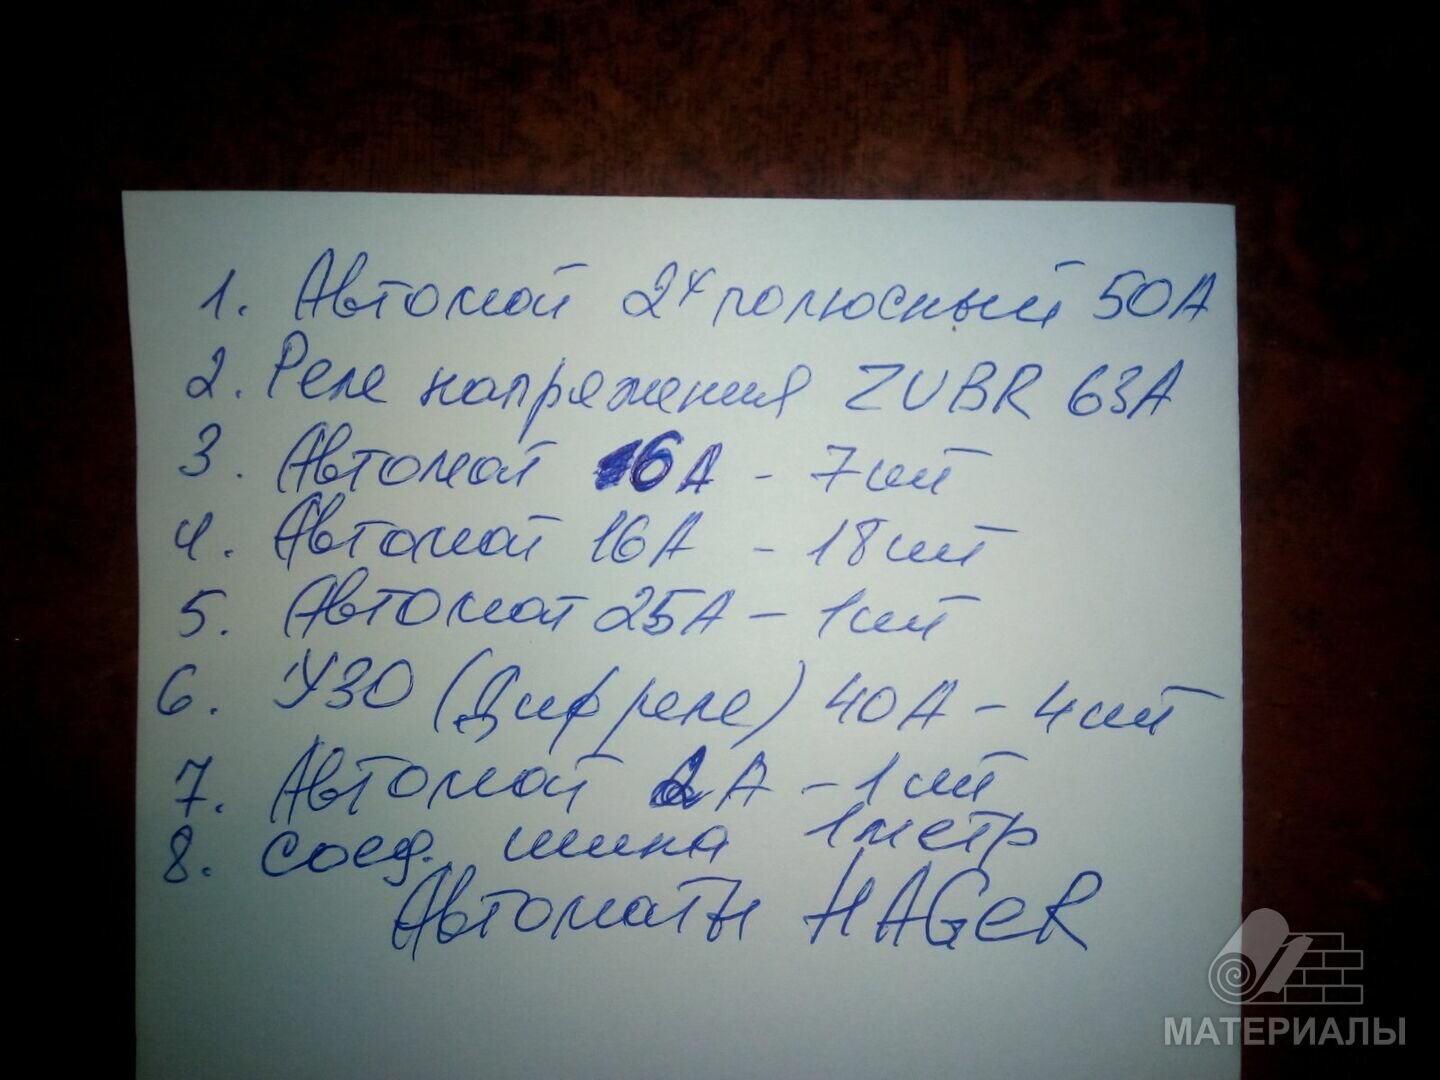 1. Автомат 2х полюсный 50А
2. Реле напряжения ZUBR 63А
3. Автомат 6А - 7шт
4. Автомат 16А - 18шт
5. Автомат 25А - 1шт
6. УЗО (Диф реле) 40А - 4шт
7. Автомат 2А - 1шт
8. Соед. шина 1метр
Автоматы HAGeR
МАТЕРИАЛЫ